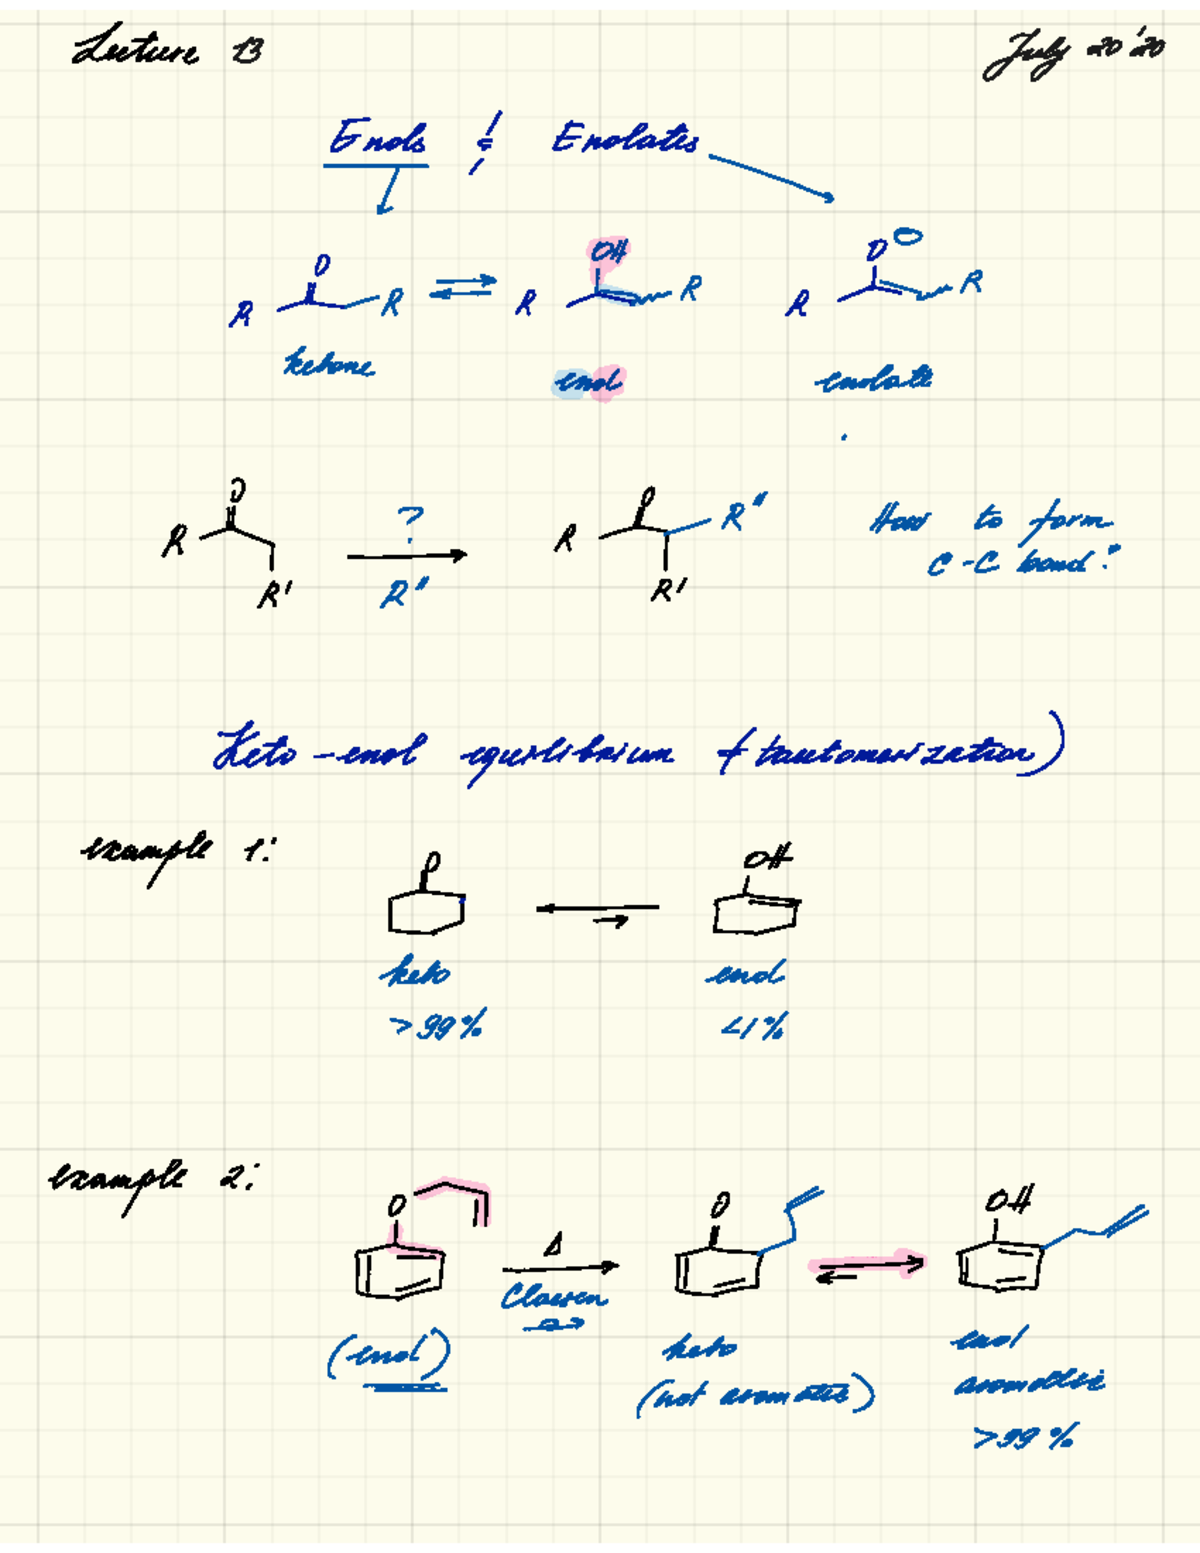 Lecture 13 July 20 '20
Enols & Enolates
O OH O ⊖
R R ⇌ R R R R
ketone enol enolate
O O R"
R ? R How to form
R' R" R' C-C bond?
Keto-enol equilibrium (tautomerization)
example 1:
O OH
keto enol
>99% <1%
example 2:
O O OH
Δ
Claisen
(enol) keto enol
(not aromatic) aromatic
>99%